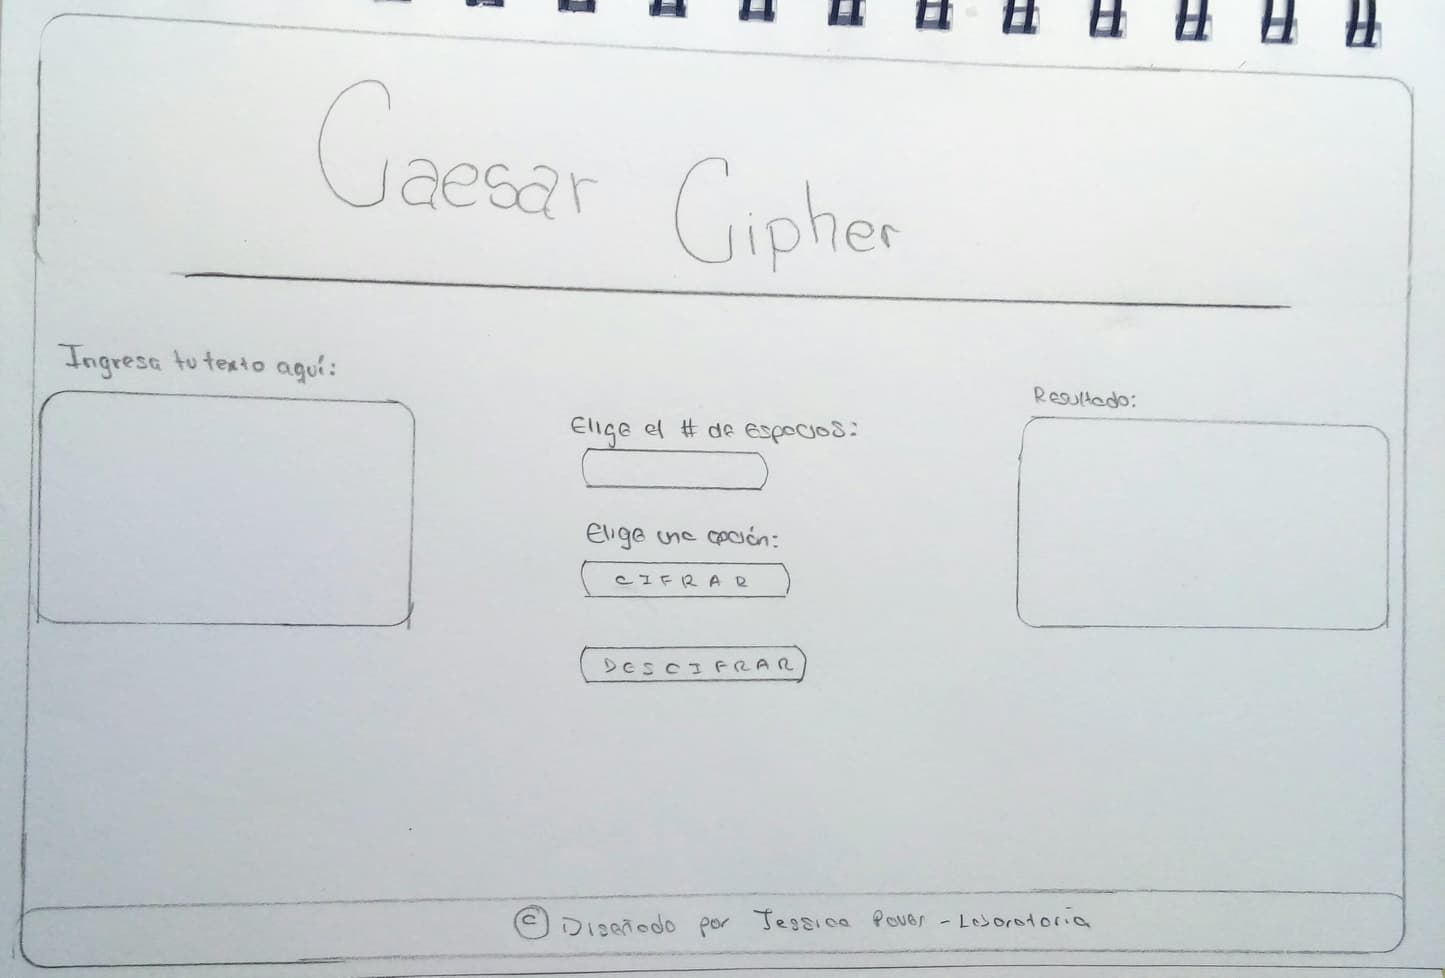 Caesar Cipher
Ingresa tu texto aquí:
Elige el # de espacios:
Elige una opción:
CIFRAR
DESCIFRAR
Resultado:
© Diseñado por Jessica - Laboratoria